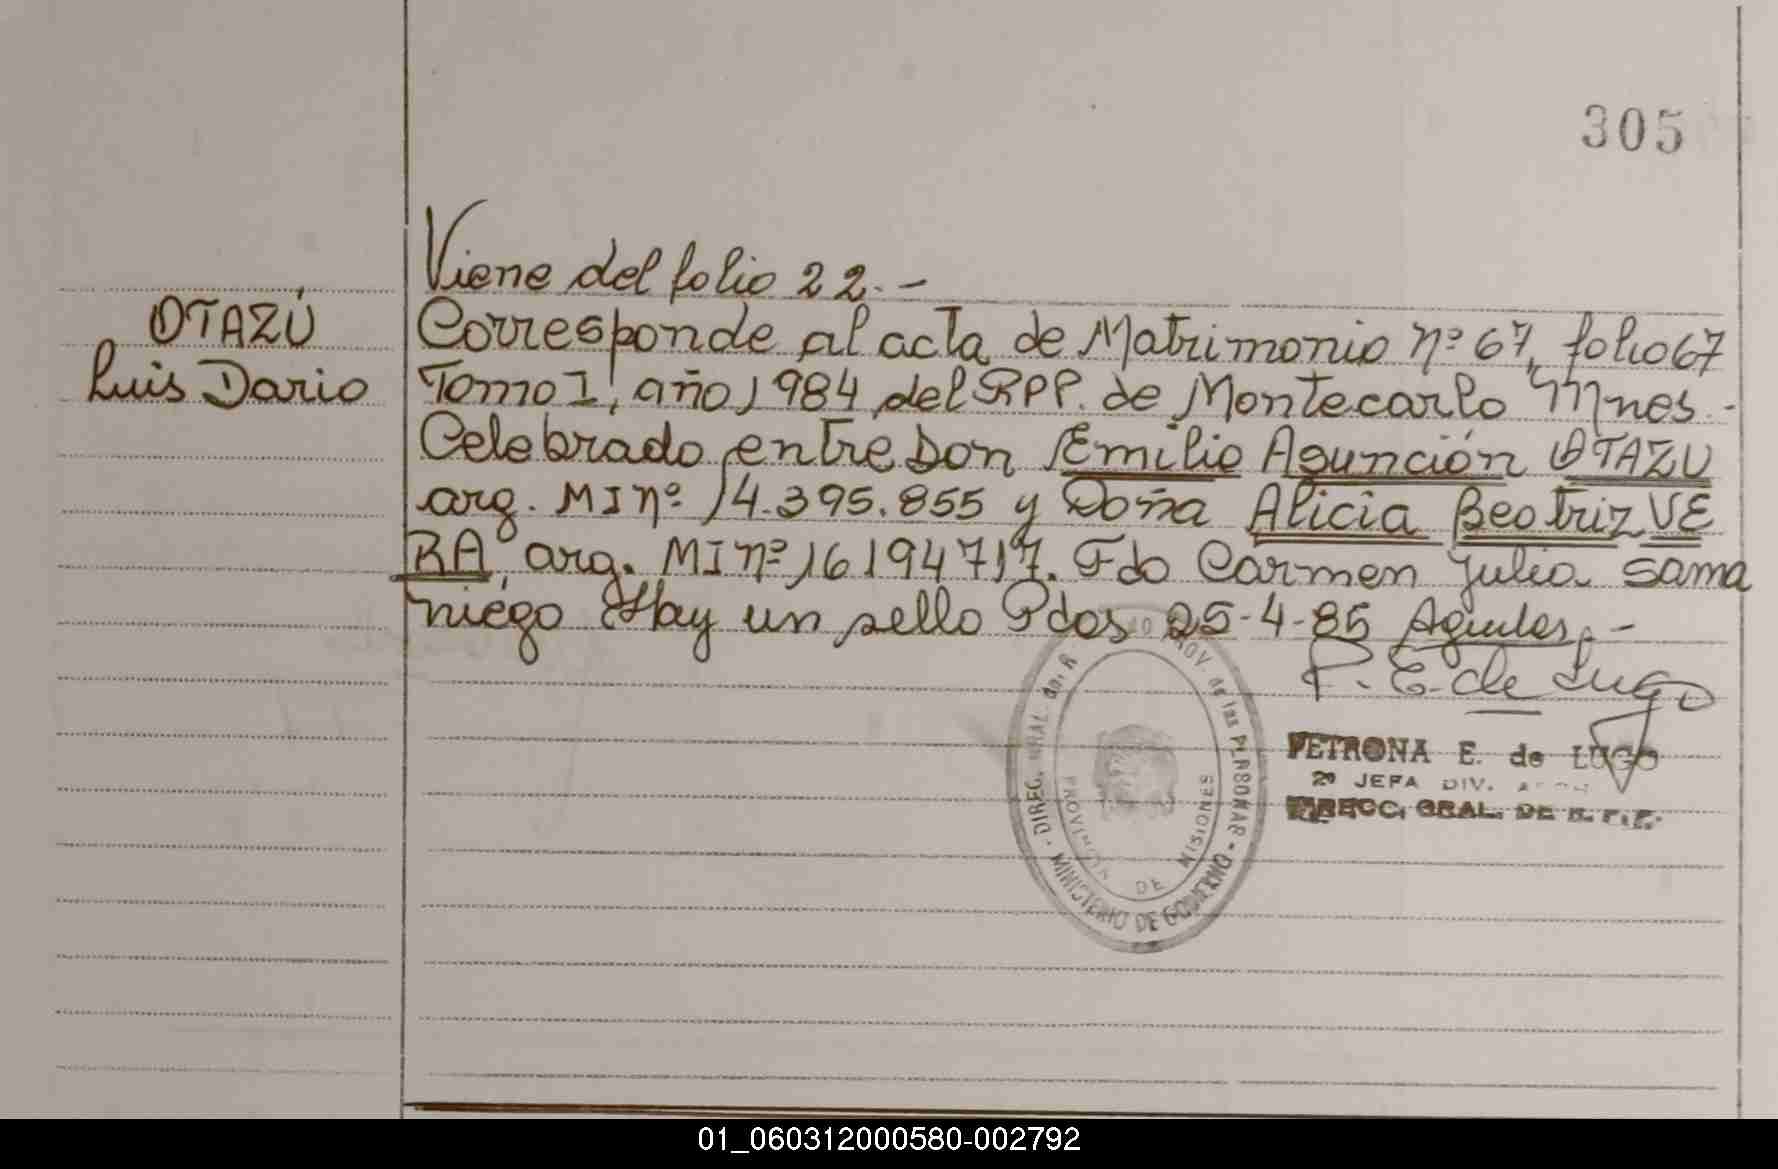 305
Viene del folio 22.-
OTAZÚ
Luis Dario
Corresponde al acta de Matrimonio nº 67, folio 67
Tomo I, año 1984 del RPP. de Montecarlo Mnes.-
Celebrado entre Don Emilio Asunción OTAZU
arg. MI nº 14.395.855 y Doña Alicia Beatriz VE
RA, arg. MI nº 16194717. Fdo Carmen Julia Sama
niego Hay un sello Pdas 25-4-85 Aguiles.-
P. E. de Lugo
PETRONA E. de LUGO
2º JEFA DIV.
DIRECC. GRAL. DE R. P. P.
DIREC. GRAL. del R PROV. de las PERSONAS - MINISTERIO DE GOBIERNO
PROVINCIA DE MISIONES
01_060312000580-002792